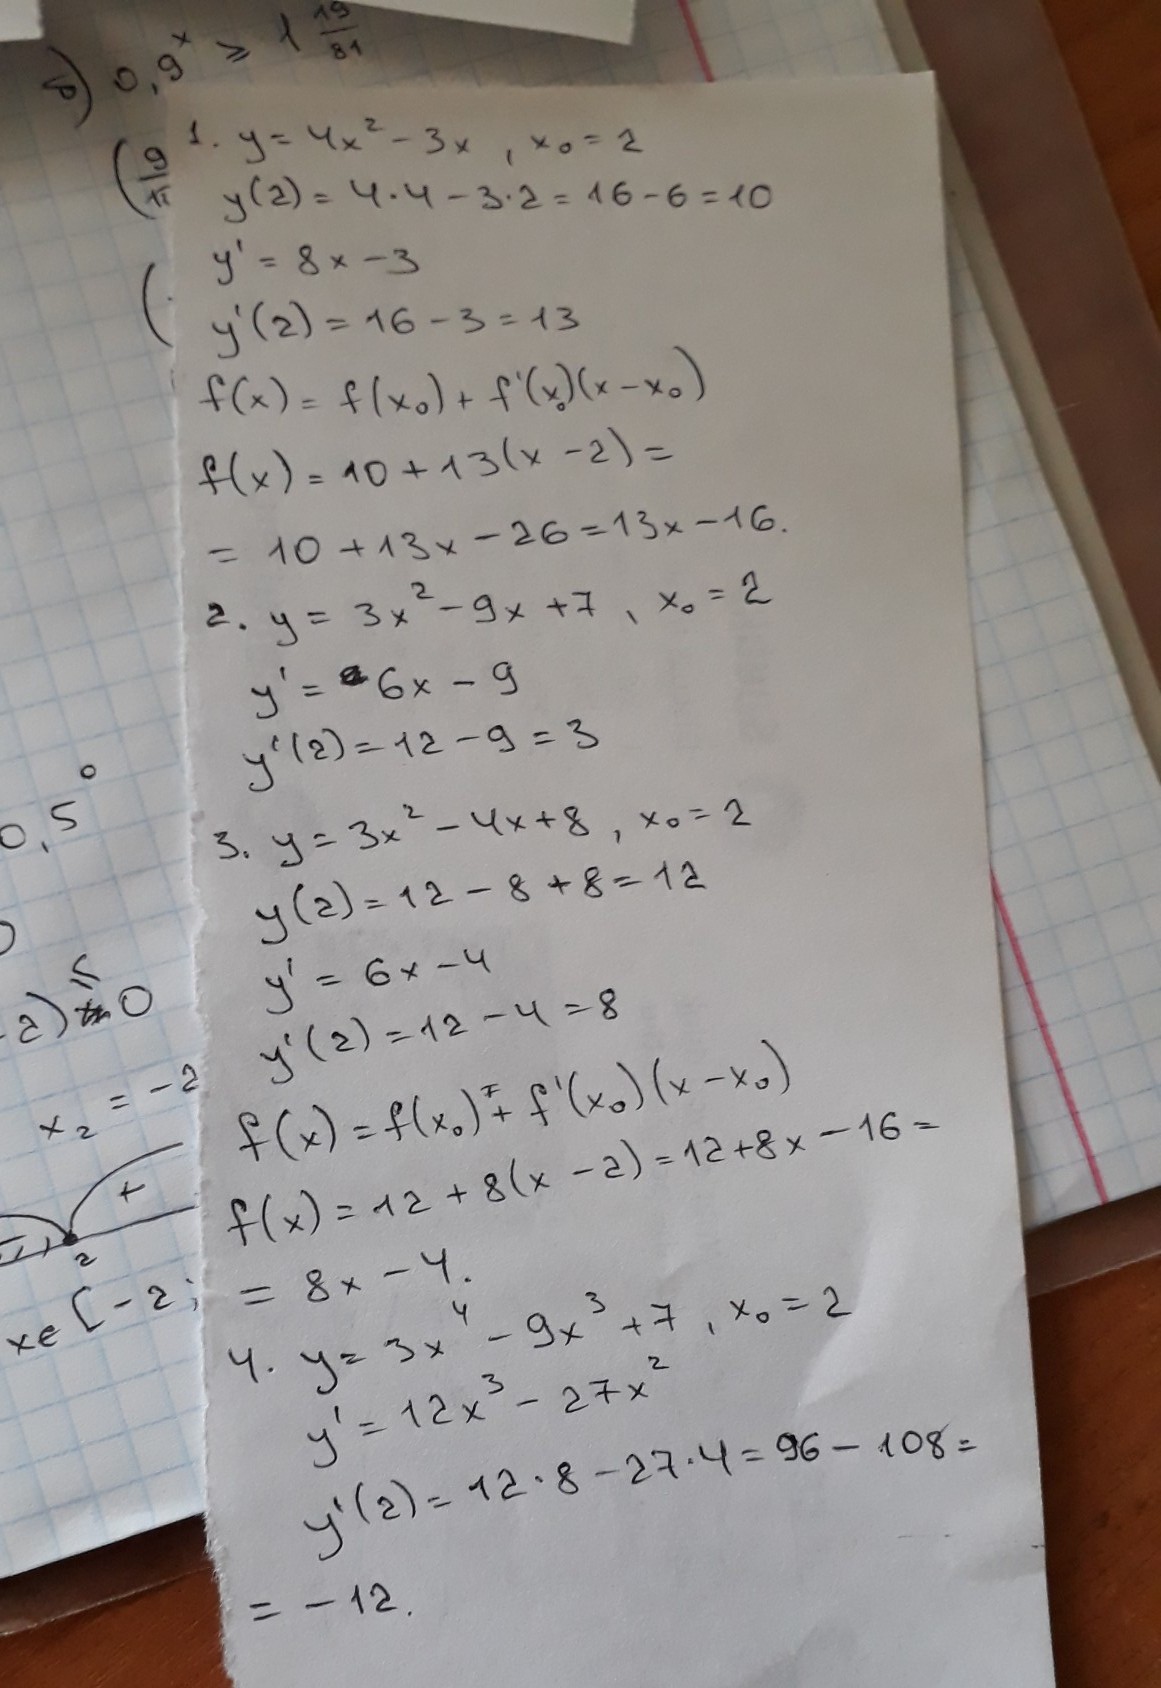 б) 0,9^x ≥ 1 19/81
(9/1
(
1. y = 4x² - 3x , x₀ = 2
y(2) = 4·4 - 3·2 = 16 - 6 = 10
y' = 8x - 3
y'(2) = 16 - 3 = 13
f(x) = f(x₀) + f'(x₀)(x - x₀)
f(x) = 10 + 13(x - 2) =
= 10 + 13x - 26 = 13x - 16.
2. y = 3x² - 9x + 7 , x₀ = 2
y' = 6x - 9
y'(2) = 12 - 9 = 3
3. y = 3x² - 4x + 8 , x₀ = 2
y(2) = 12 - 8 + 8 = 12
y' = 6x - 4
y'(2) = 12 - 4 = 8
f(x) = f(x₀) + f'(x₀)(x - x₀)
f(x) = 12 + 8(x - 2) = 12 + 8x - 16 =
= 8x - 4.
4. y = 3x⁴ - 9x³ + 7 , x₀ = 2
y' = 12x³ - 27x²
y'(2) = 12·8 - 27·4 = 96 - 108 =
= -12.
0,5⁰
-2) ≤ 0
x₂ = -2
+
2
x∈[-2;